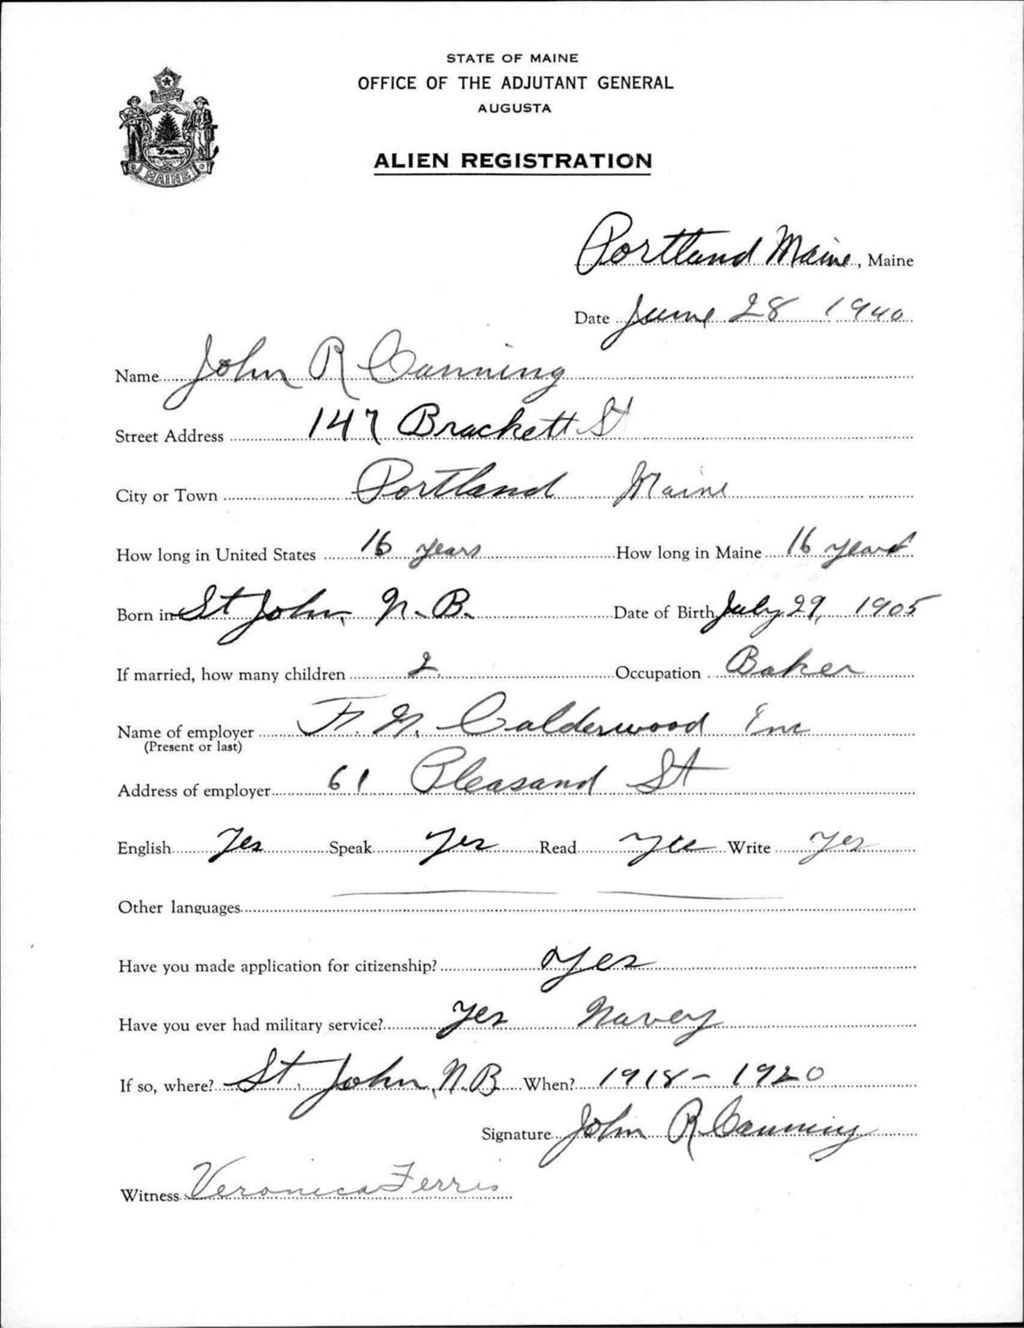 STATE OF MAINE
OFFICE OF THE ADJUTANT GENERAL
AUGUSTA
ALIEN REGISTRATION
MAINE
Portland Maine, Maine
Date June 28 1940
Name John R Canning
Street Address 147 Brackett St
City or Town Portland Maine
How long in United States 16 years How long in Maine 16 years
Born in St John, N. B. Date of Birth July 29, 1905
If married, how many children 2 Occupation Baker
Name of employer F. N. Calderwood Inc
(Present or last)
Address of employer 61 Pleasand St
English Yes Speak Yes Read Yes Write Yes
Other languages
Have you made application for citizenship? Yes
Have you ever had military service? Yes Navey
If so, where? St. John, N.B. When? 1918-1920
Signature John R Canning
Witness Veronica Ferris